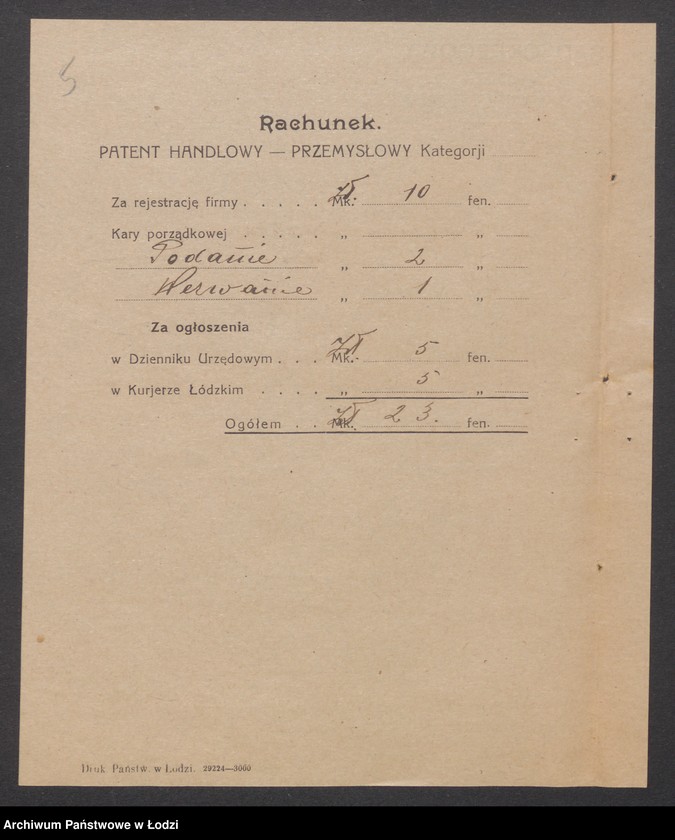 5
Rachunek.
PATENT HANDLOWY — PRZEMYSŁOWY Kategorji
Za rejestrację firmy . . . . . Mk. Zł. 10 fen.
Kary porządkowej . . . . . „ „
Podanie „ 2 „
Wezwanie „ 1 „
Za ogłoszenia
w Dzienniku Urzędowym . . . Mk. Zł 5 fen.
w Kurjerze Łódzkim . . . . „ 5 „
Ogółem . . Mk. Zł 23. fen.
Druk. Państw. w Łodzi. 29224—3000
Archiwum Państwowe w Łodzi